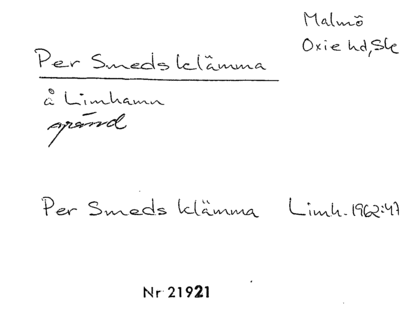 Malmö
Oxie hd, Sk
Per Smeds klämma
å Limhamn
gränd
Per Smeds klämma Limh. 1962:47
Nr 21921